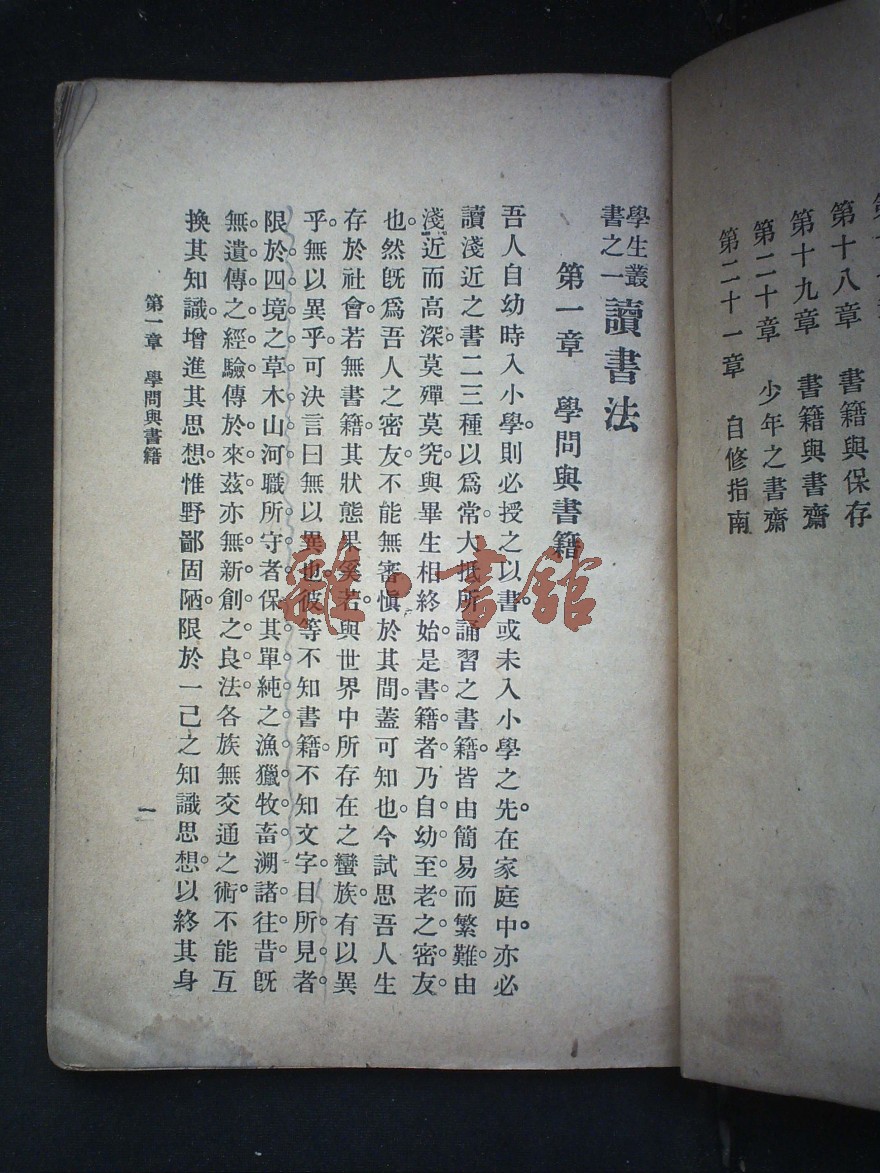 第十八章 書籍與保存
第十九章 書籍與書齋
第二十章 少年之書齋
第二十一章 自修指南
學生叢書之一 讀書法
第一章 學問與書籍
吾人自幼時入小學。則必授之以書。或未入小學之先。在家庭中。亦必
讀淺近之書二三種以爲常。大抵所誦習之書籍。皆由簡易而繁難。由
淺近而高深。莫殫莫究。與畢生相終始。是書籍者。乃自幼至老之密友
也。然旣爲吾人之密友。不能無審愼於其間。蓋可知也。今試思吾人生
存於社會。若無書籍。其狀態果奚若。與世界中所存在之蠻族。有以異
乎。無以異乎。可決言曰無以異也。彼等不知書籍。不知文字。目所見者。
限於四境之草木山河。職所守者。保其單純之漁獵牧畜。溯諸往昔。旣
無遺傳之經驗。傳於來茲。亦無新創之良法。各族無交通之術。不能互
換其知識。增進其思想。惟野鄙固陋。限於一己之知識思想。以終其身
第一章 學問與書籍
一
雜·書館